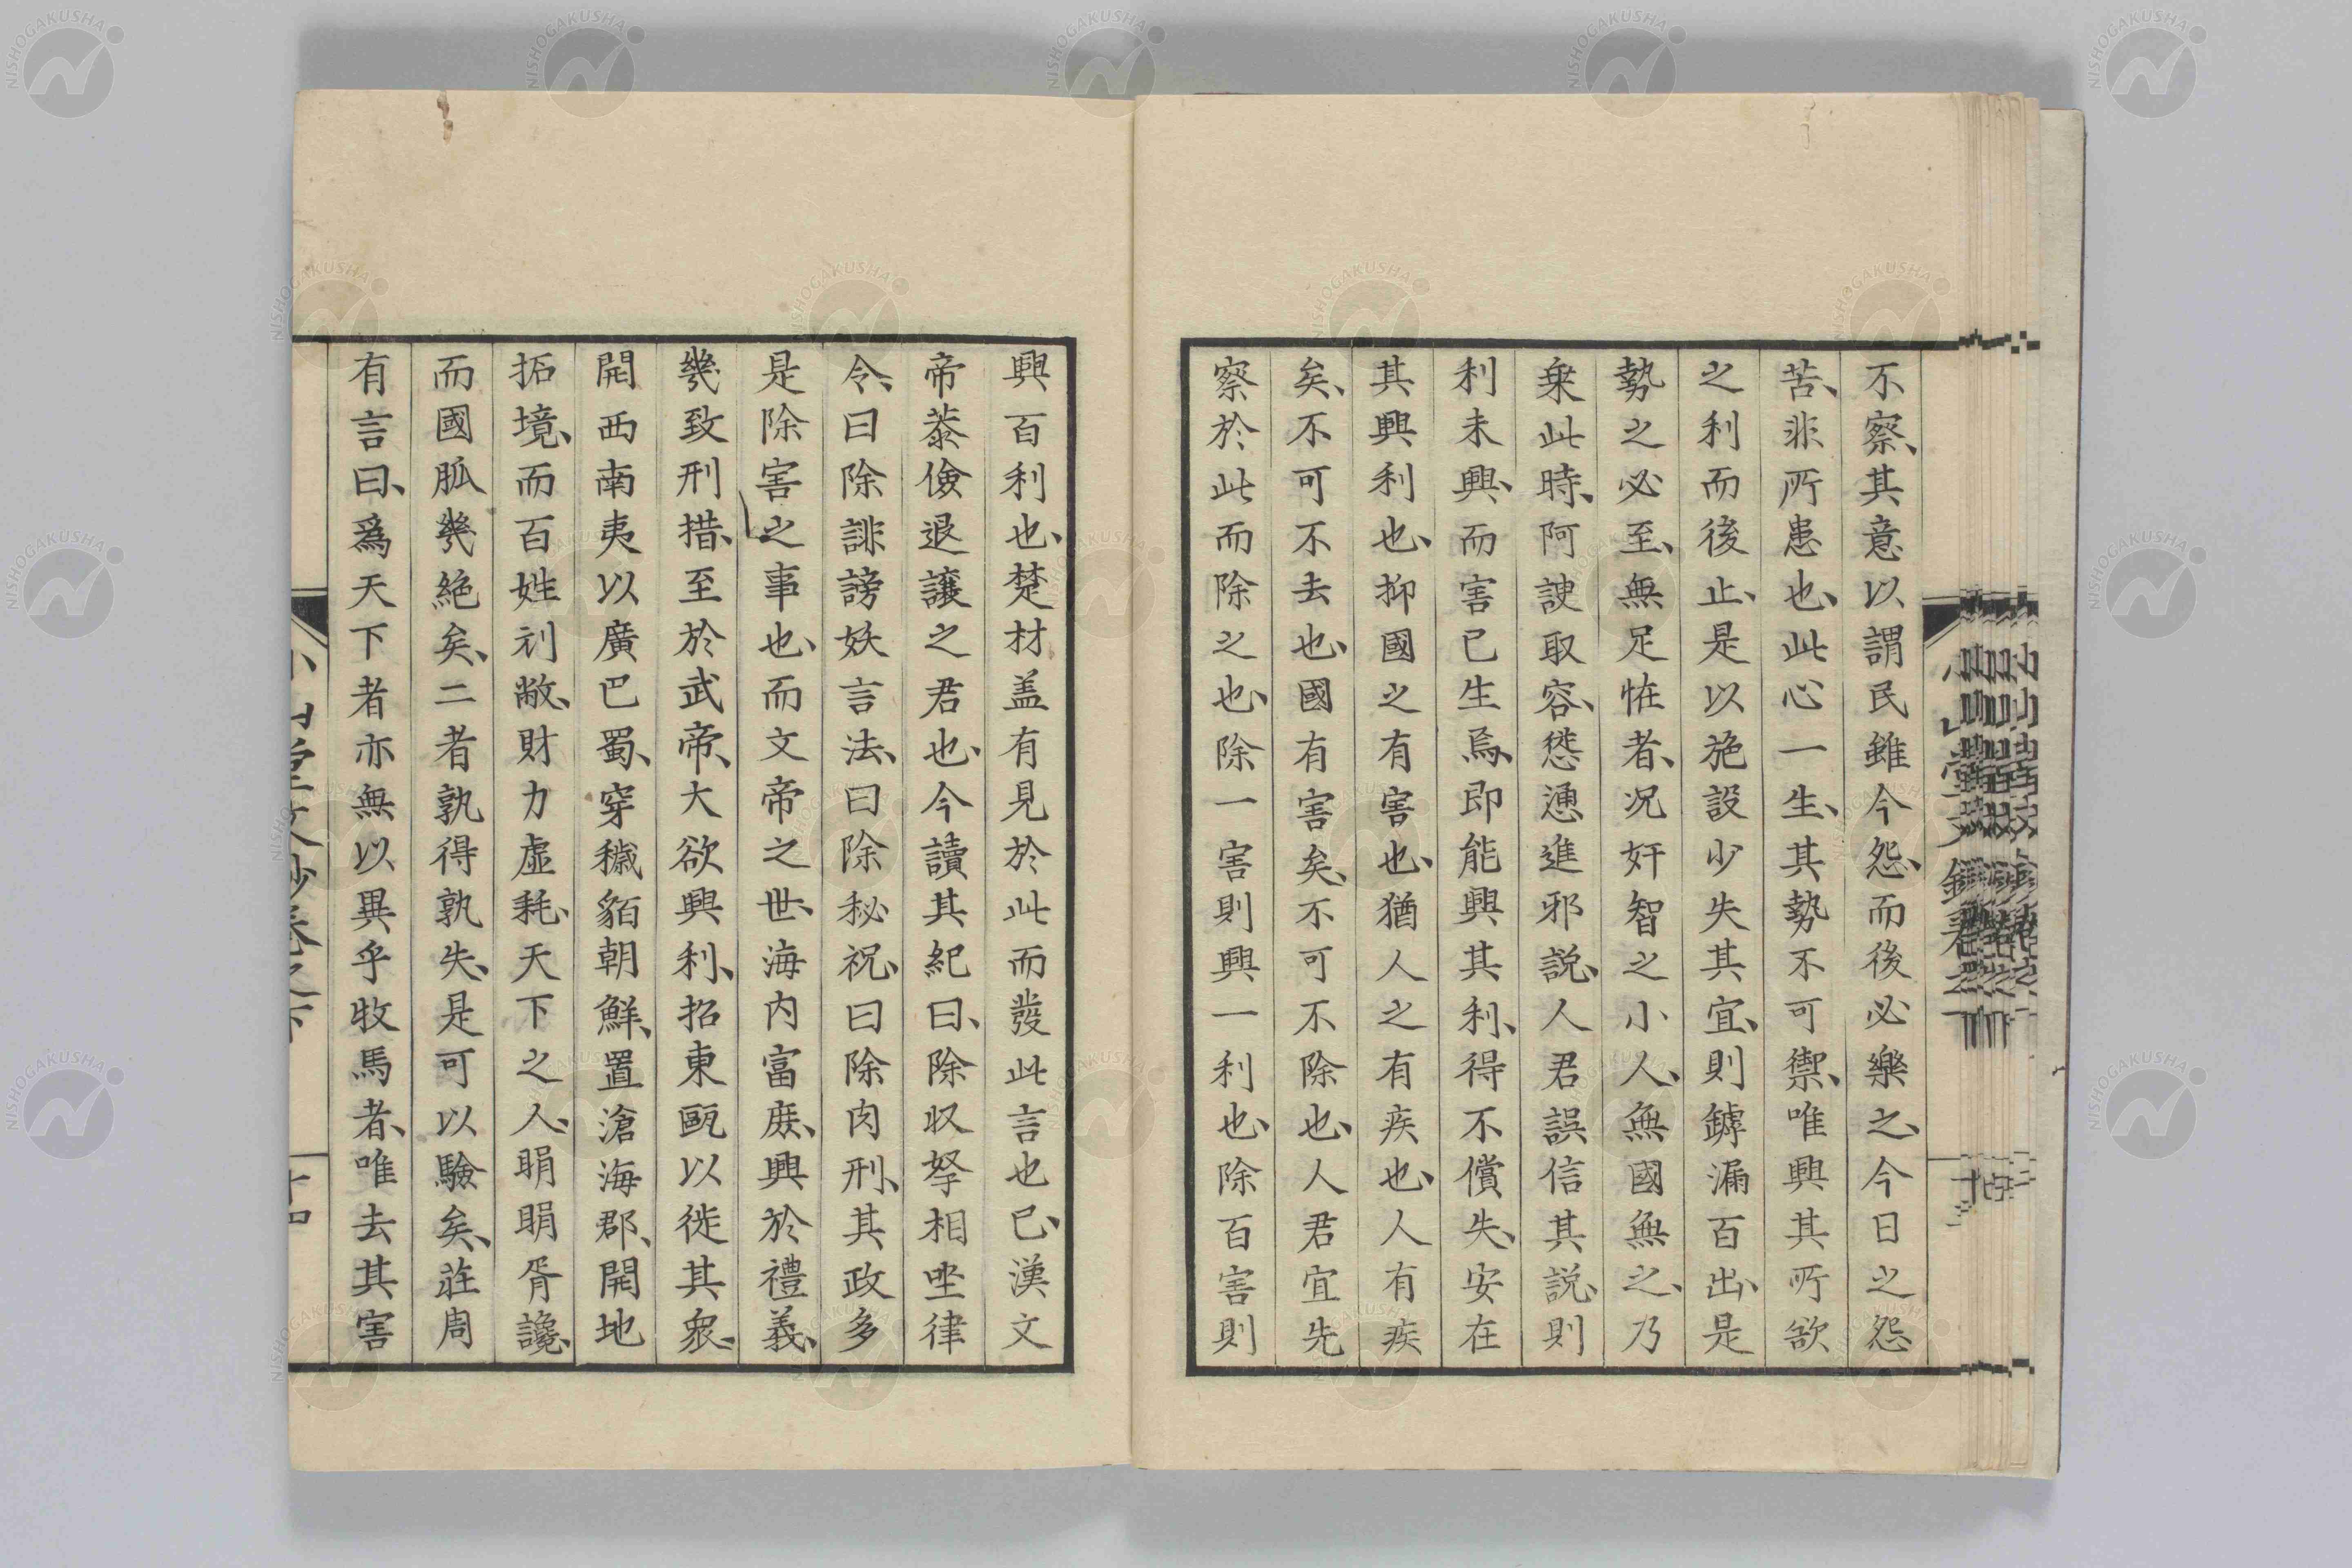 不察、其意以謂民雖今怨、而後必樂之、今日之怨
苦、非所患也、此心一生、其勢不可禦、唯興其所欲
之利而後止、是以施設少失其宜、則鏬漏百出、是
勢之必至、無足恠者、况奸智之小人、無國無之、乃
乗此時、阿諛取容、慫慂進邪説、人君誤信其説、則
利未興、而害已生焉、即能興其利、得不償失、安在
其興利也、抑國之有害也、猶人之有疾也、人有疾
矣、不可不去也、國有害矣、不可不除也、人君宜先
察於此而除之也、除一害則興一利也、除百害則
興百利也、楚材盖有見於此而發此言也已、漢文
帝恭儉退讓之君也、今讀其紀曰、除収孥相坐律
令、曰除誹謗妖言法、曰除秘祝、曰除肉刑、其政多
是除害之事也、而文帝之世、海内富庶、興於禮義、
幾致刑措、至於武帝、大欲興利、招東甌以徙其衆、
開西南夷以廣巴蜀、穿穢貊朝鮮、置滄海郡、開地
拓境、而百姓刓敝、財力虚耗、天下之人、睊睊胥讒、
而國脈幾絶矣、二者孰得孰失、是可以驗矣、莊周
有言曰、爲天下者亦無以異乎牧馬者、唯去其害